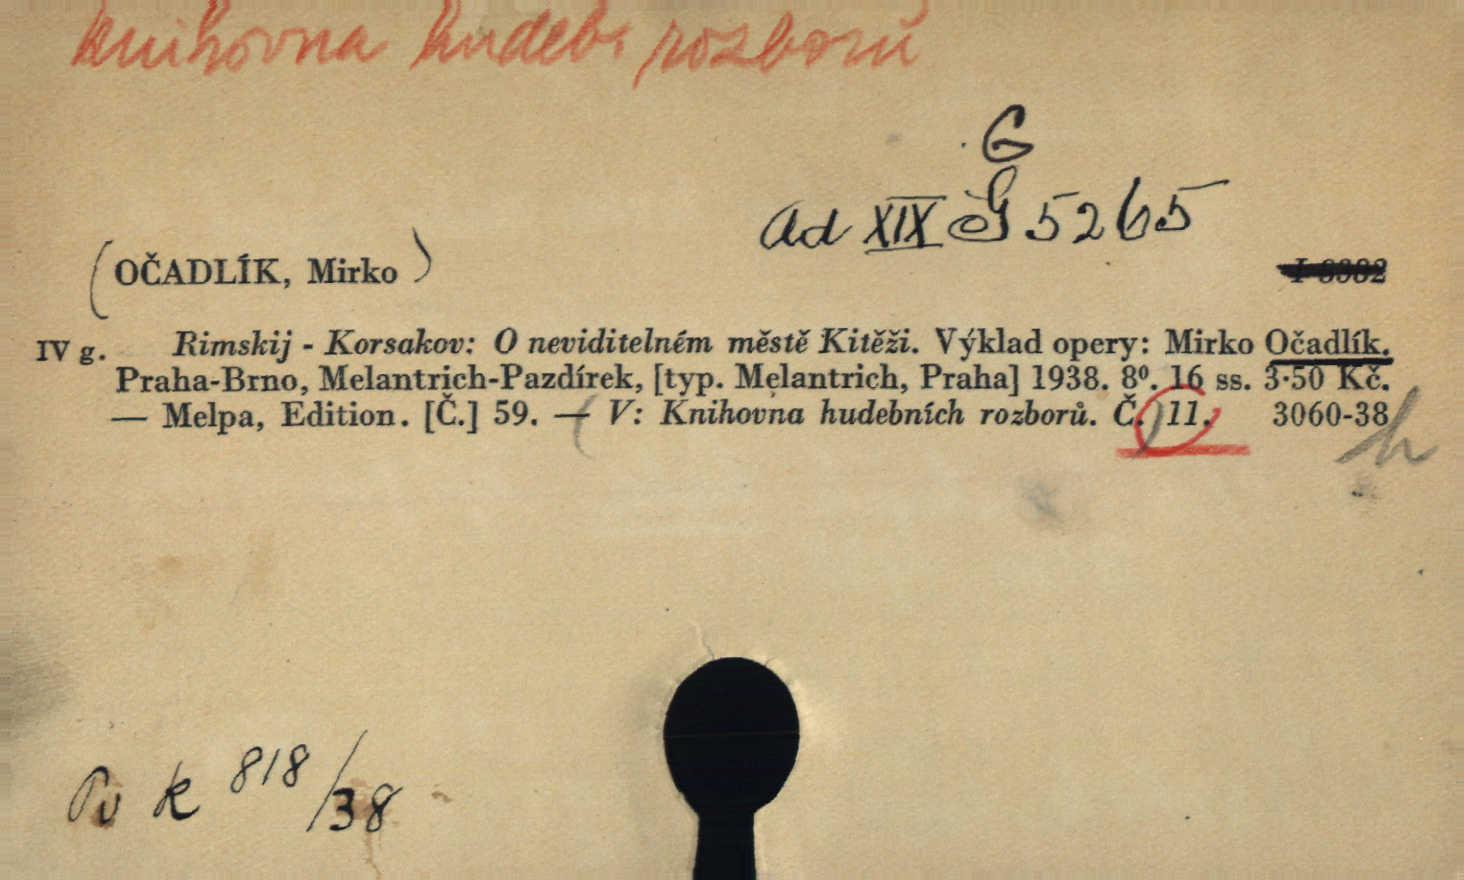 knihovna hudeb. rozborů
G
ad XIX G 5265
(OČADLÍK, Mirko)
IV g. Rimskij - Korsakov: O neviditelném městě Kitěži. Výklad opery: Mirko Očadlík.
Praha-Brno, Melantrich-Pazdírek, [typ. Melantrich, Praha] 1938. 8⁰. 16 ss. 3·50 Kč.
— Melpa, Edition. [Č.] 59. — (V: Knihovna hudebních rozborů. Č.) 11. 3060-38
h
Pv k 818/38